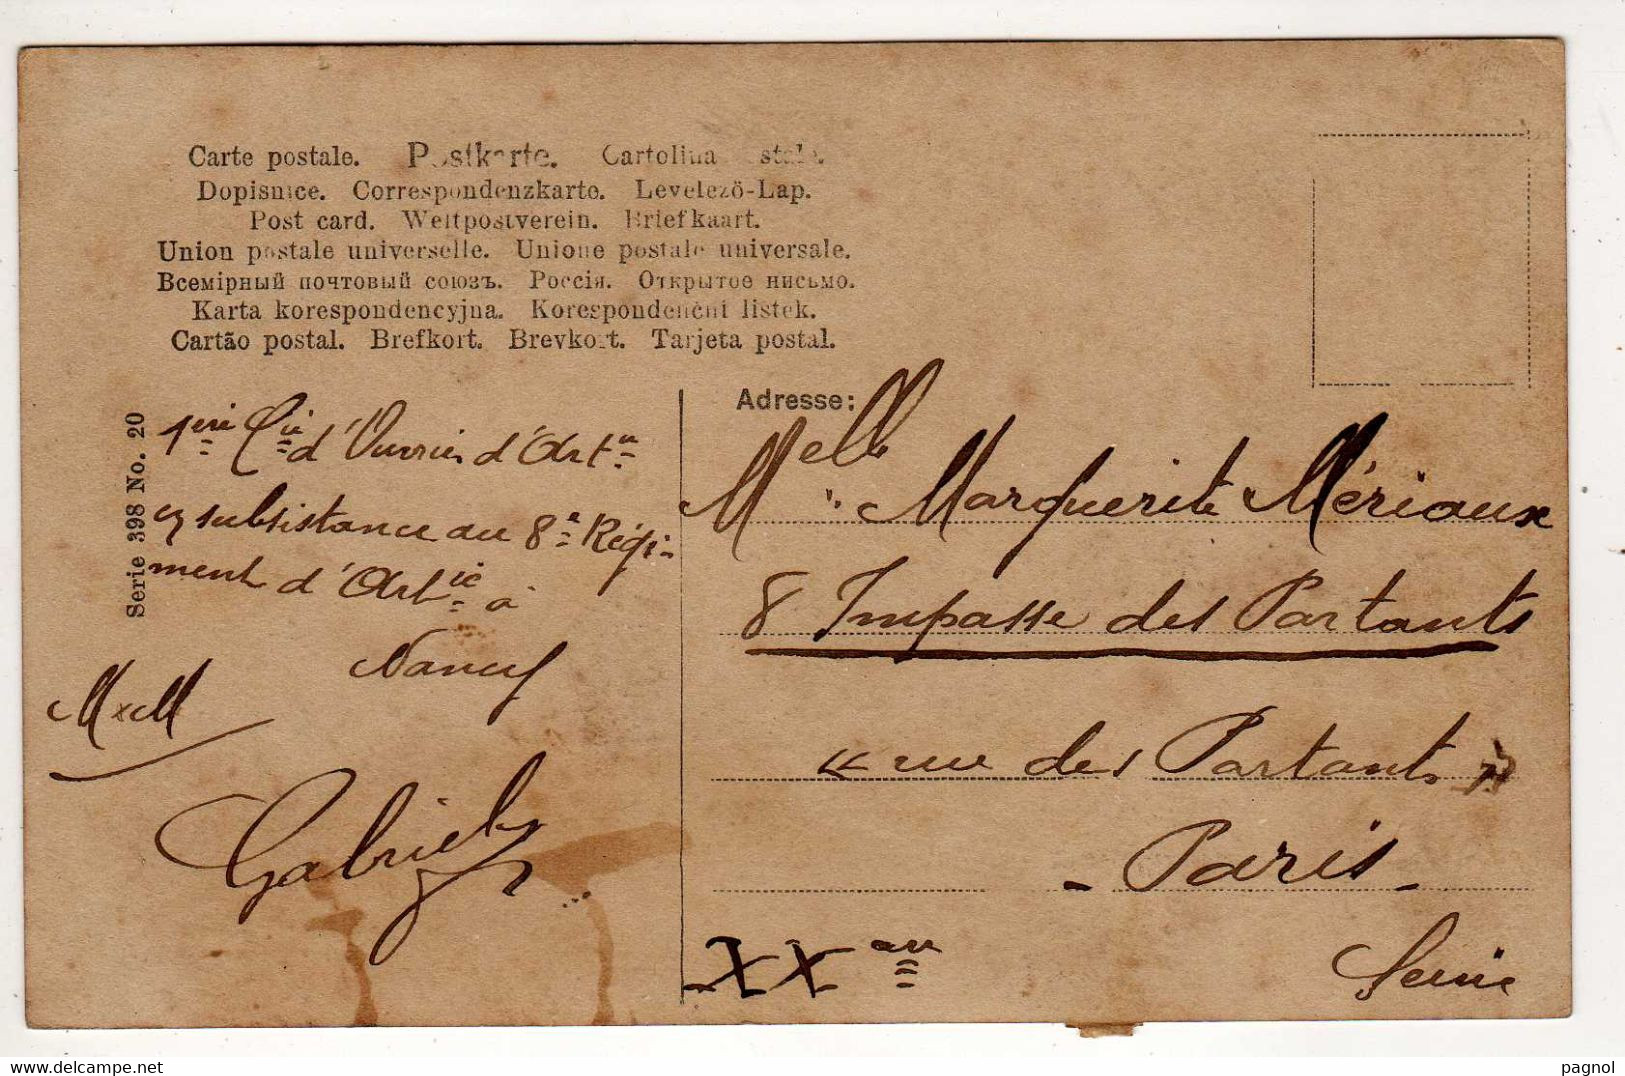 Carte postale. Postkarte. Cartolina postale.
Dopisnice. Correspondenzkarte. Levelező-Lap.
Post card. Weltpostverein. Briefkaart.
Union postale universelle. Unione postale universale.
Всемірный почтовый союзъ. Россія. Открытое письмо.
Karta korespondencyjna. Korespondenční listek.
Cartão postal. Brefkort. Brevkort. Tarjeta postal.
Serie 398 No. 20
1ère Cie d'Ouvriers d'Artie
en subsistance au 8e Régi-
ment d'Artie à
Nancy
MxM
Gabriel
Adresse:
Melle Marguerite Mériaux
8 Impasse des Partants
« rue des Partants »
- Paris -
XXe
Seine
delcampe.net
pagnol